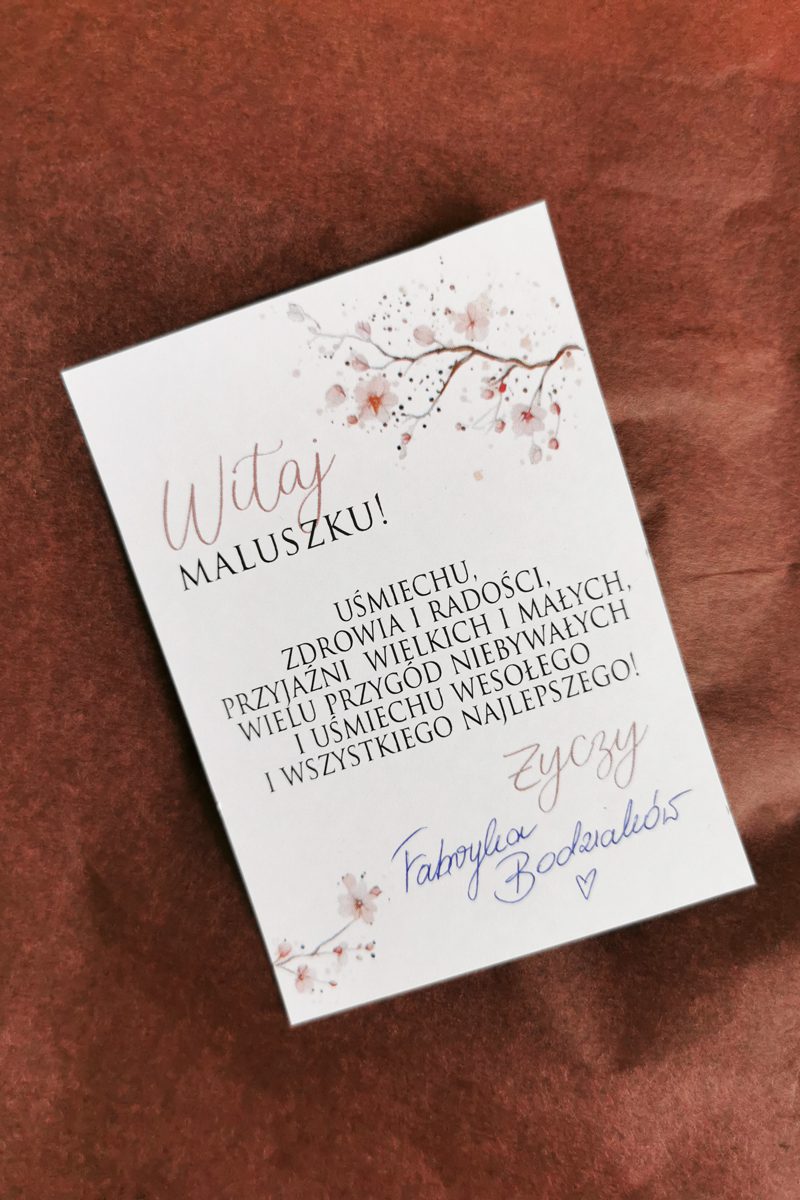 Witaj
MALUSZKU!
UŚMIECHU,
ZDROWIA I RADOŚCI,
PRZYJAŹNI WIELKICH I MAŁYCH,
WIELU PRZYGÓD NIEBYWAŁYCH
I UŚMIECHU WESOŁEGO
I WSZYSTKIEGO NAJLEPSZEGO!
Życzy
Fabryka
Bodziaków